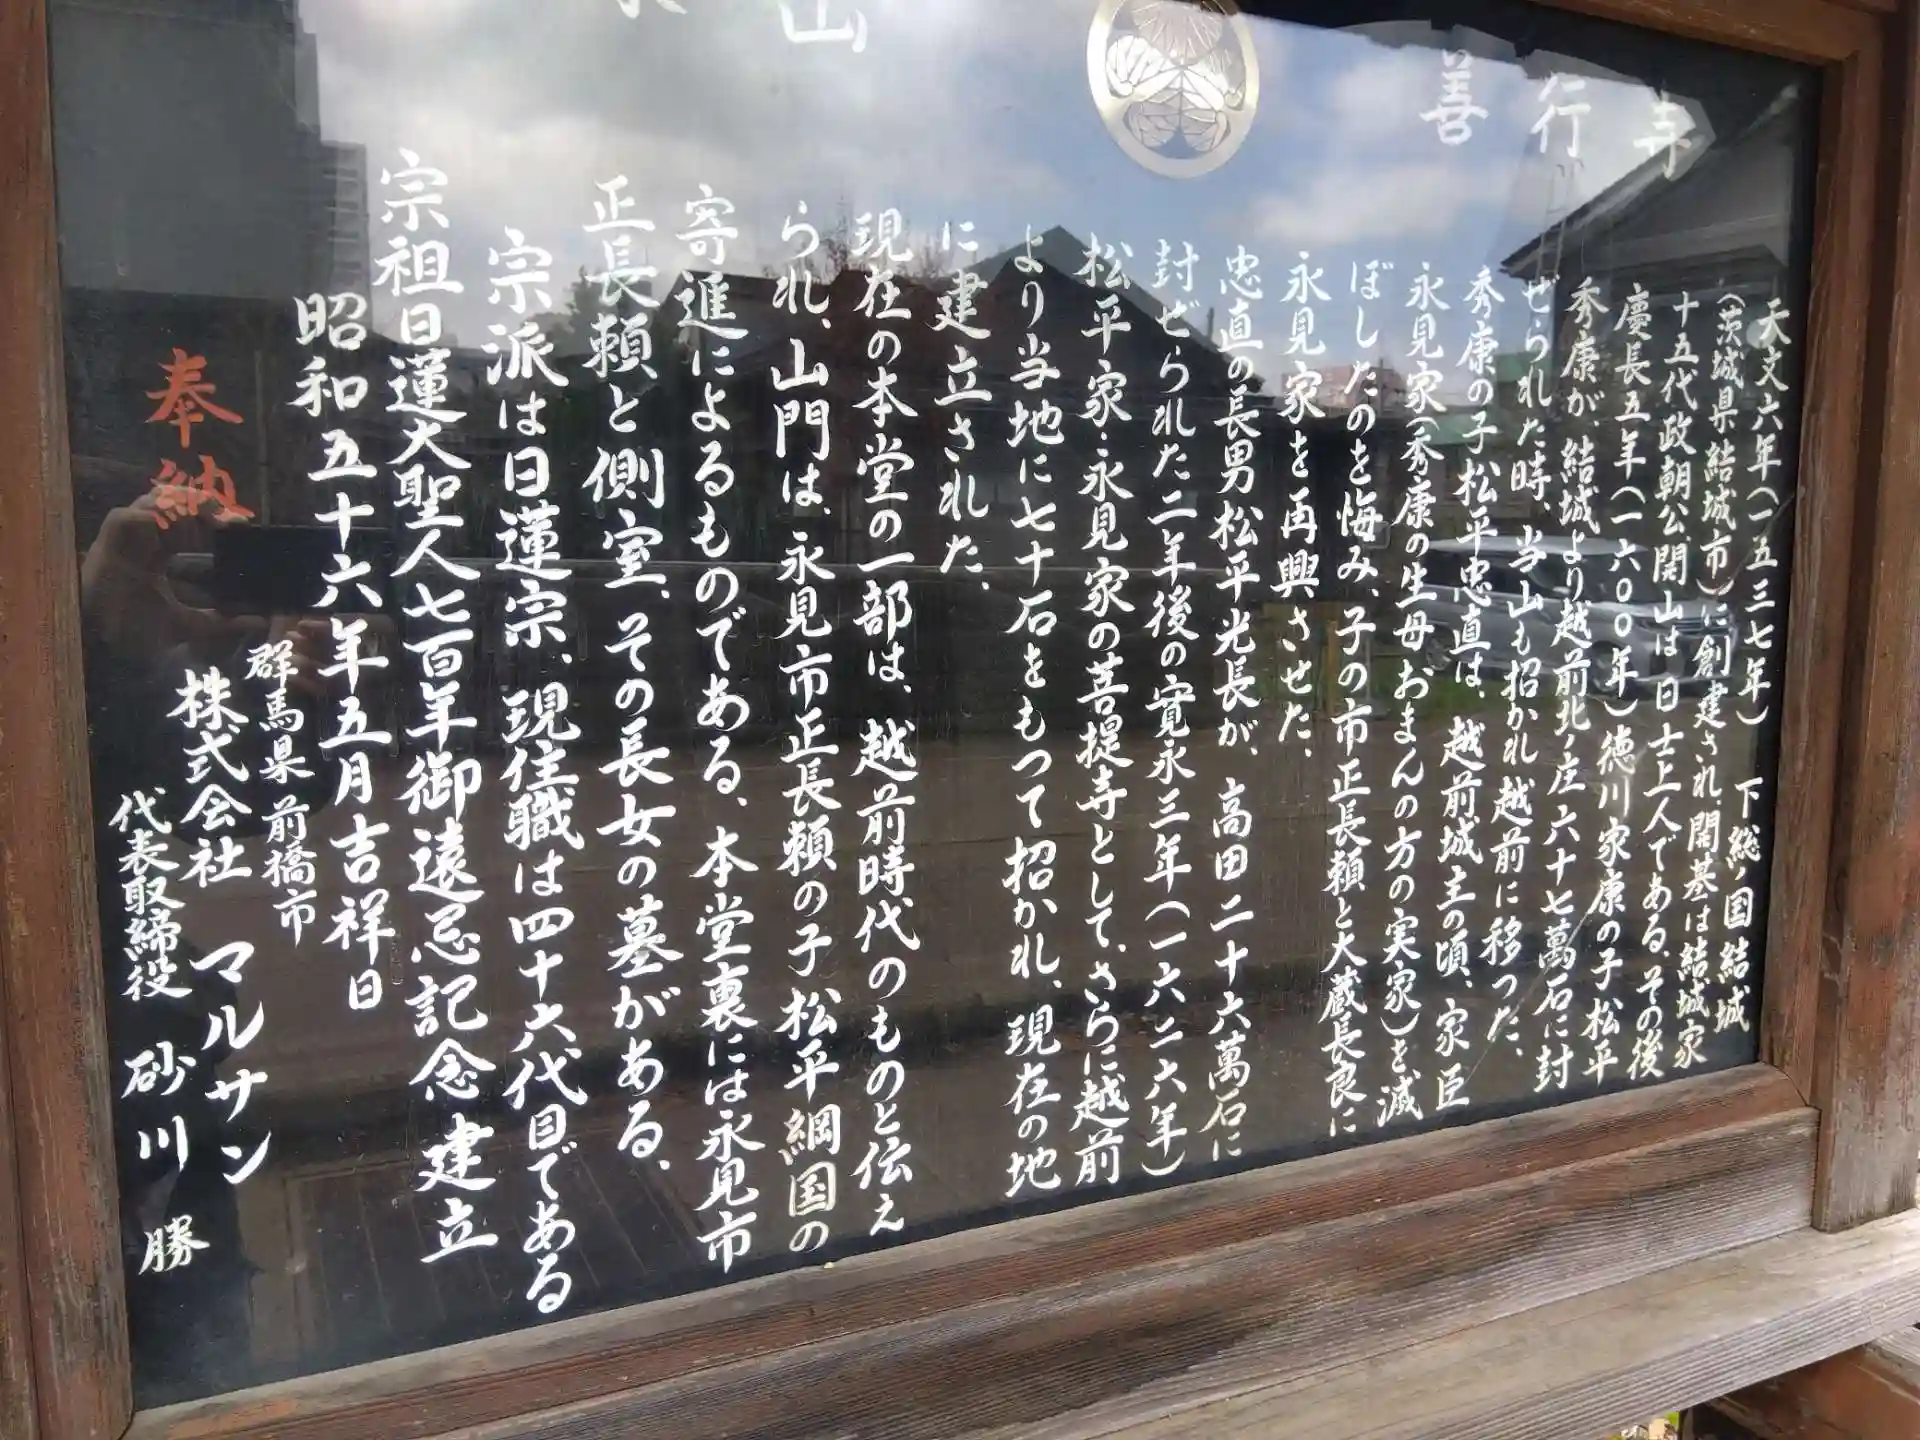 山
善行寺
天文六年(一五三七年)下総ノ国結城
(茨城県結城市)に創建され、開基は結城家
十五代政朝公、開山は日士上人である。その後
慶長五年(一六〇〇年)徳川家康の子松平
秀康が、結城より越前北ノ庄六十七萬石に封
ぜられた時、当山も招かれ越前に移った、
秀康の子松平忠直は、越前城主の頃、家臣
永見家(秀康の生母おまんの方の実家)を滅
ぼしたのを悔み、子の市正長頼と大蔵長良に
永見家を再興させた、
忠直の長男松平光長が、高田二十六萬石に
封ぜられた二年後の寛永三年(一六二六年)
松平家・永見家の菩提寺として、さらに越前
より当地に七十石をもって招かれ、現在の地
に建立された、
現在の本堂の一部は、越前時代のものと伝え
られ、山門は、永見市正長頼の子松平綱国の
寄進によるものである、本堂裏には永見市
正長頼と側室、その長女の墓がある、
宗派は日蓮宗、現住職は四十六代目である
宗祖日蓮大聖人七百年御遠忌記念建立
昭和五十六年五月吉祥日
群馬県前橋市
株式会社 マルサン
代表取締役 砂川 勝
奉納